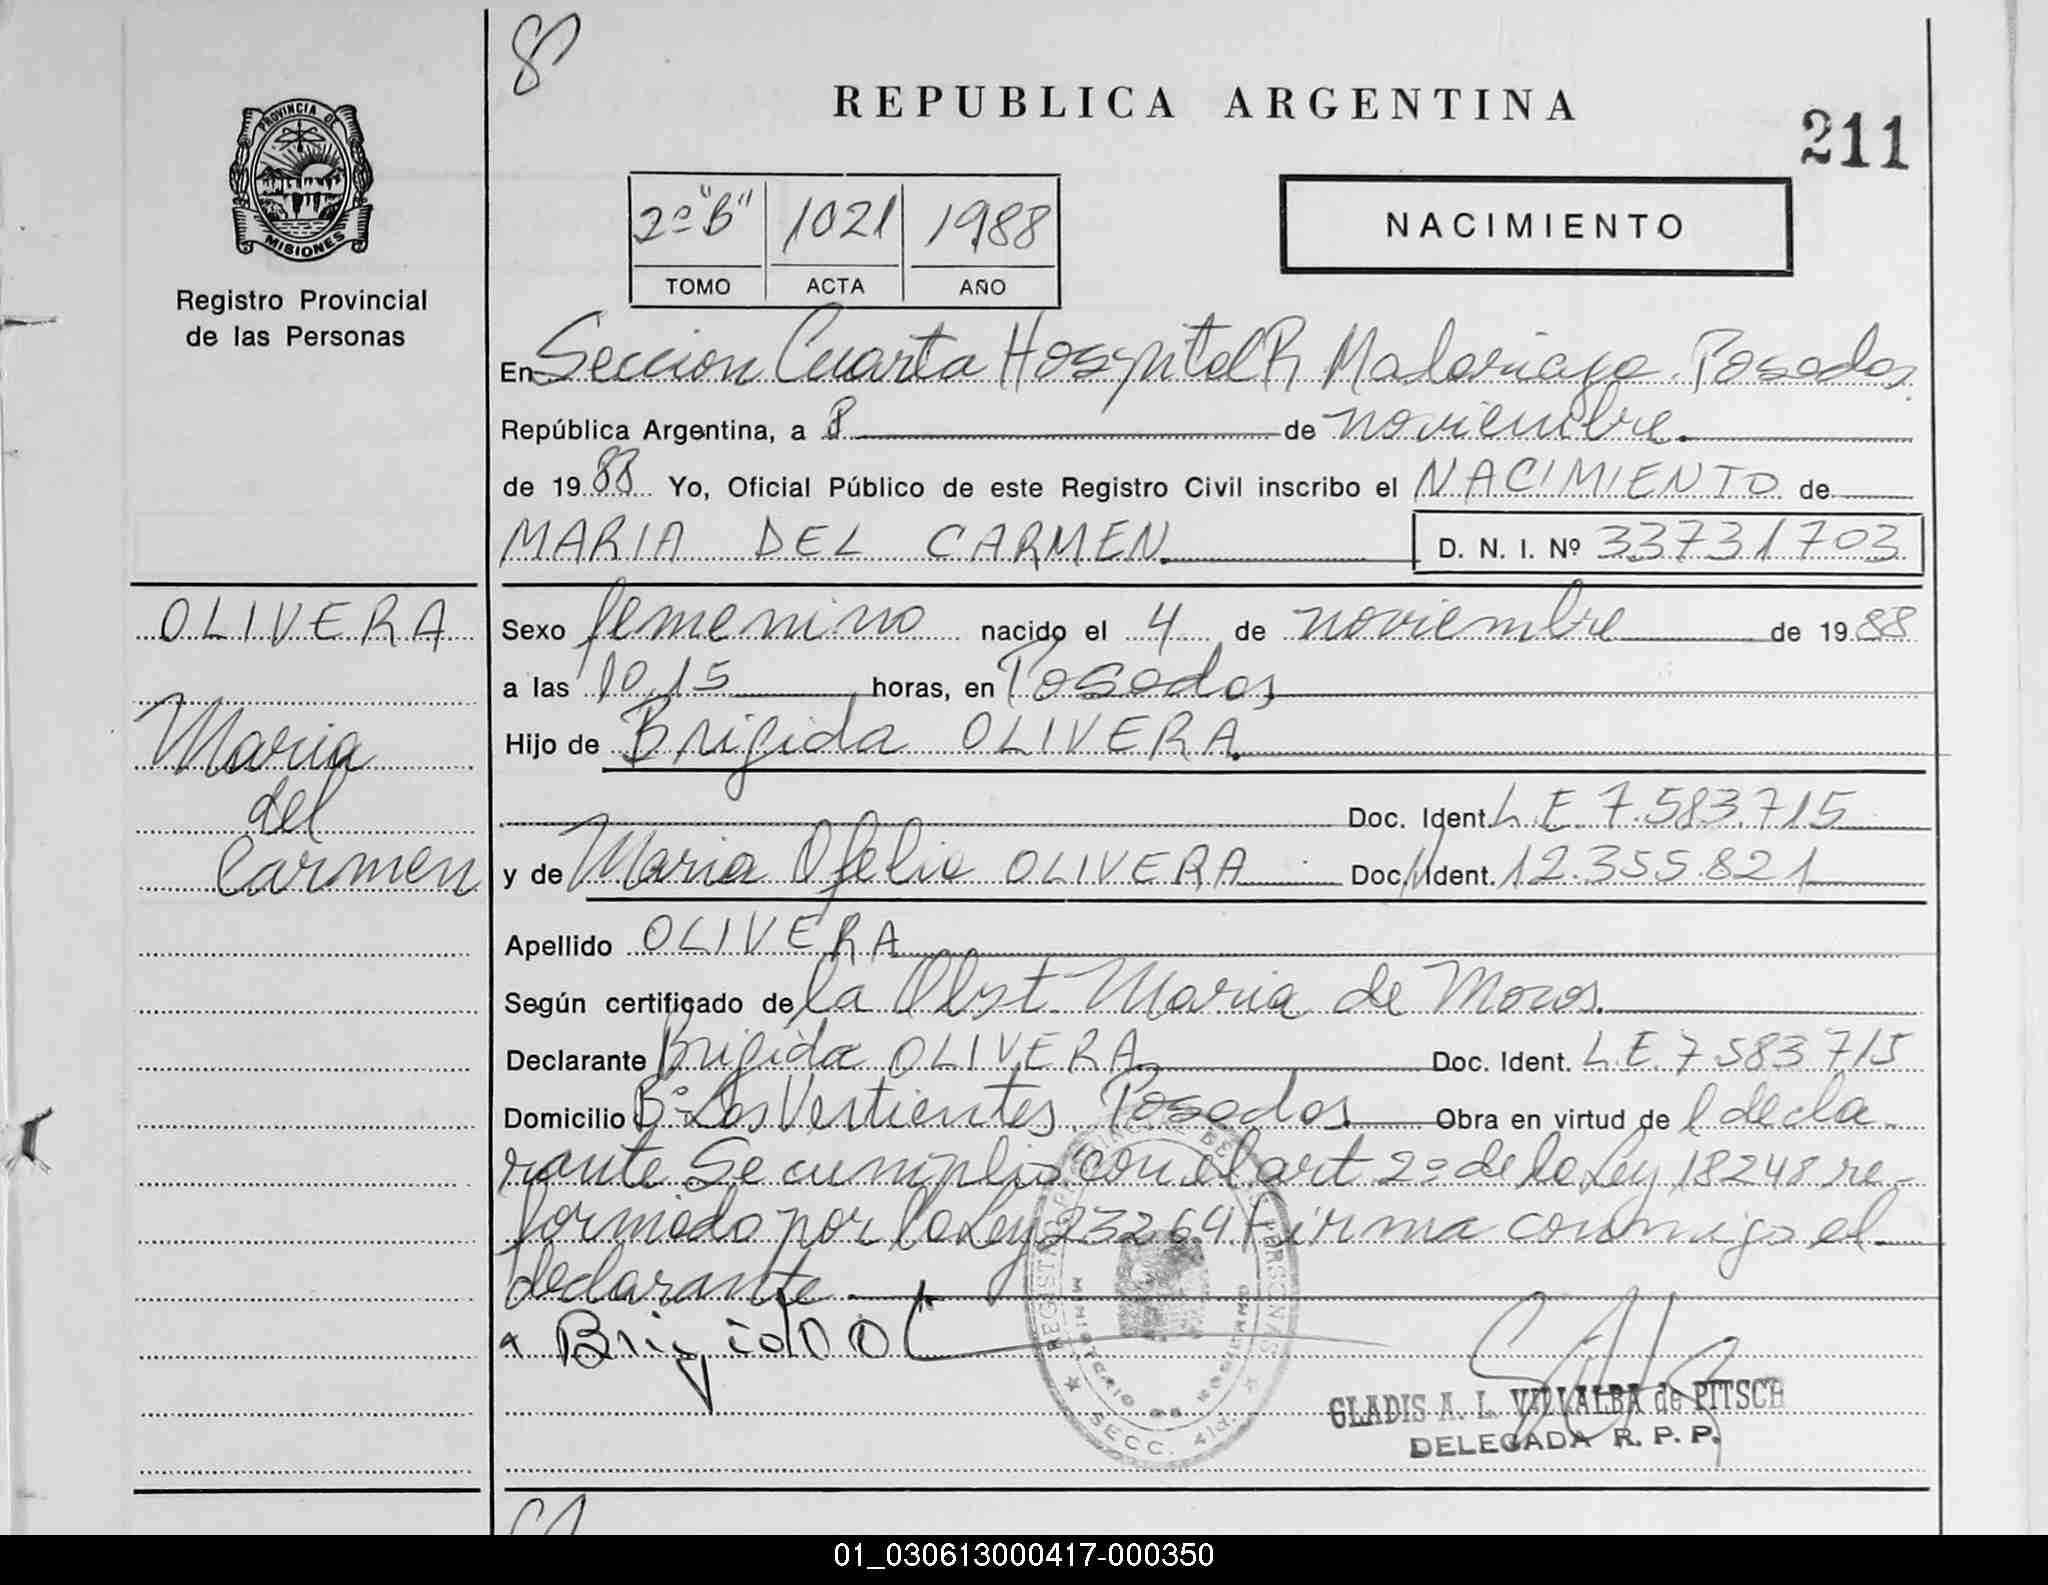 REPUBLICA ARGENTINA
211
PROVINCIA DE
MISIONES
Registro Provincial
de las Personas
2º "B" 1021 1988
TOMO ACTA AÑO
NACIMIENTO
En Seccion Cuarta Hospital R Madariaga. Posadas
República Argentina, a 8 de noviembre
de 1988 Yo, Oficial Público de este Registro Civil inscribo el NACIMIENTO de
MARIA DEL CARMEN D. N. I. Nº 33731703
OLIVERA
Maria
del
Carmen
Sexo femenino nacido el 4 de noviembre de 1988
a las 10.15 horas, en Posadas
Hijo de Brigida OLIVERA
Doc. Ident. L.E. 7.583.715
y de Maria Ofelia OLIVERA Doc. Ident. 12.355.821
Apellido OLIVERA
Según certificado de la Obst. Maria de
Declarante Brigida OLIVERA Doc. Ident. L.E. 7583715
Domicilio Bº Las Vertientes, Posadas Obra en virtud de l decla
rante Se cumplio con el art 2º de la Ley 18248 re-
formado por la Ley 23264 Firma conmigo el
declarante
REGISTRO PROVINCIAL DE LAS PERSONAS
MINISTERIO DE GOBIERNO
SECC. 4ta.
GLADIS A. L. VILLALBA de PITSCH
DELEGADA R. P. P.
01_030613000417-000350